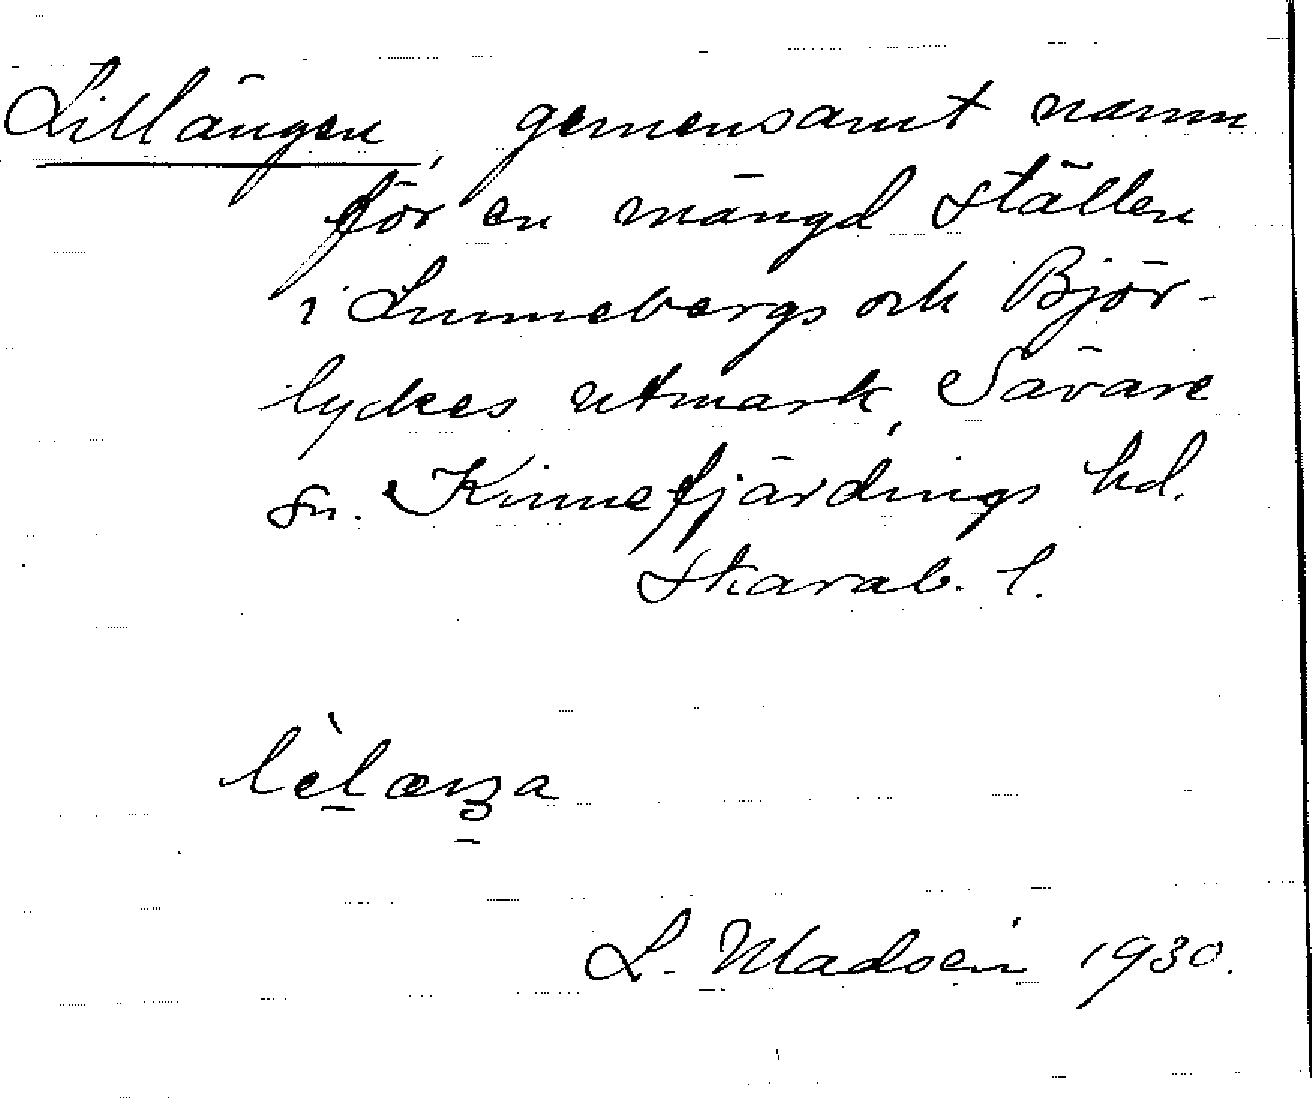 Lillängen, gemensamt namn
för en mängd ställen
i Lunnebergs och Björ-
lyckes utmark, Sävare
sn. Kinnefjärdings hd.
Skarab. l.
L. Madsén 1930.